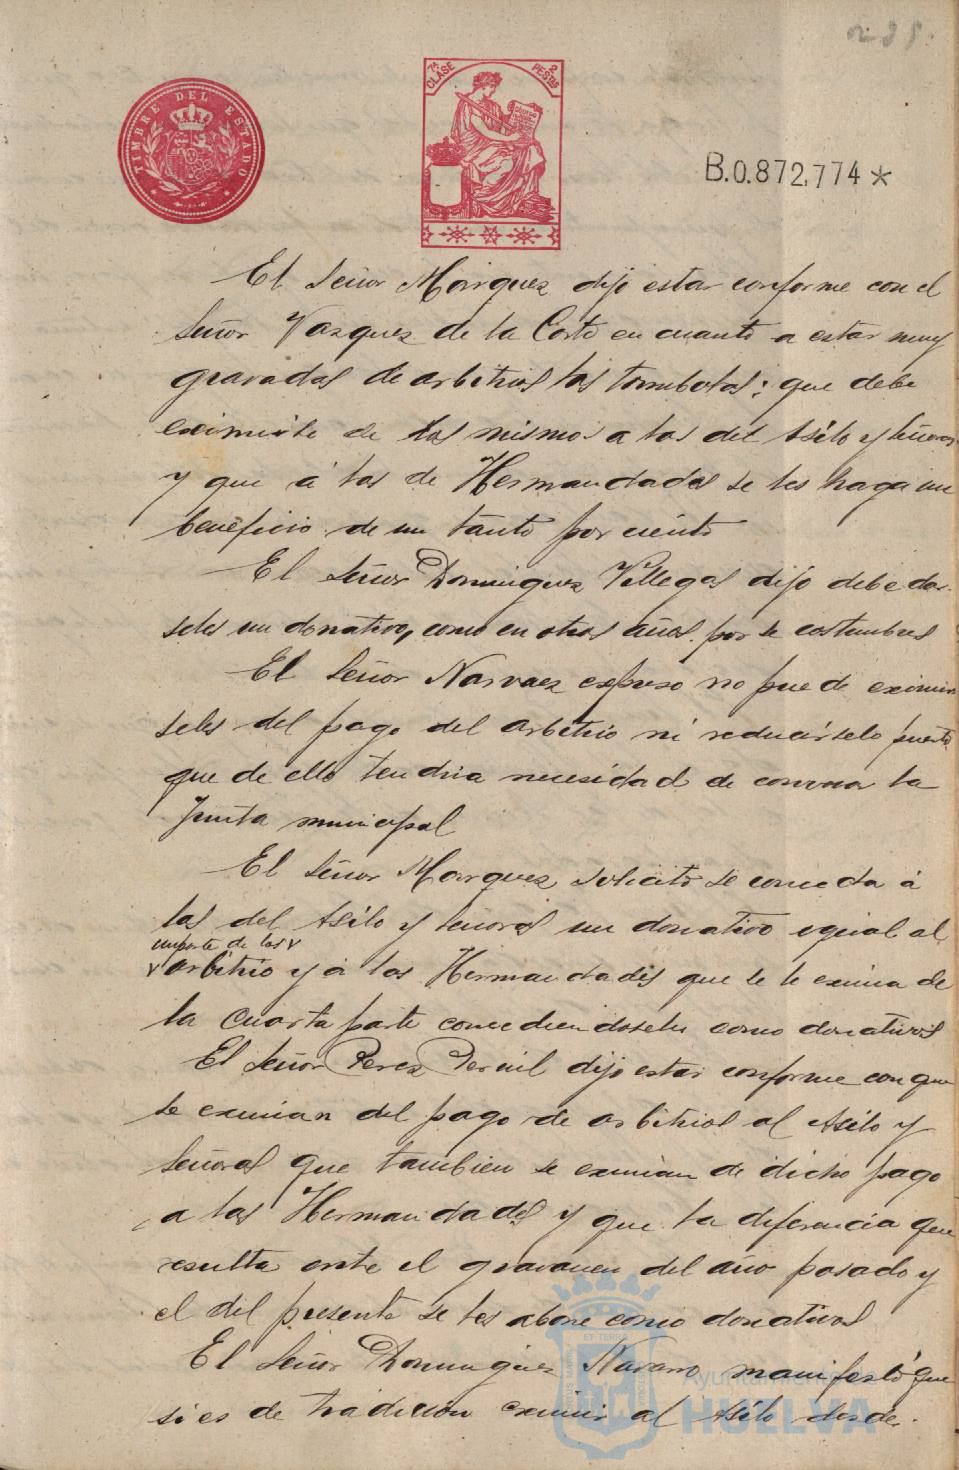 235.
TIMBRE DEL ESTADO
7ª CLASE 2 PESTAS
B.0.872,774*
El Señor Márquez dijo estar conforme con el
Señor Vazquez de la Corte en cuanto a estar muy
gravadas de arbitrios las tombolas; que debe
eximirse de los mismos a las del Asilo y Señoras
y que á las de Hermandades se les haga un
beneficio de un tanto por ciento
El Señor Dominguez Villegas dijo debe dar-
seles un donativo, como en otros años por se costumbres
El Señor Narvaez expuso no puede eximir
seles del pago del arbitrio ni reducirselo puesto
que de ello tendria necesidad de conocer la
Junta municipal
El Señor Marquez solicitó se conceda á
las del Asilo y Señoras un donativo igual al
importe de los
arbitrio y á las Hermandades que se le exima de
la cuarta parte concediendoseles como donativos
El Señor Perez Pernil dijo estar conforme con que
se eximan del pago de arbitrios al Asilo y
Señoras que tambien se eximan de dicho pago
a las Hermandades y que la diferencia que
resulta ente el gravamen del año pasado y
el del presente se les abone como donativos
El Señor Dominguez Navarro manifestó que
si es de tradicion eximir al Asilo desde
Ayuntamiento de
HUELVA